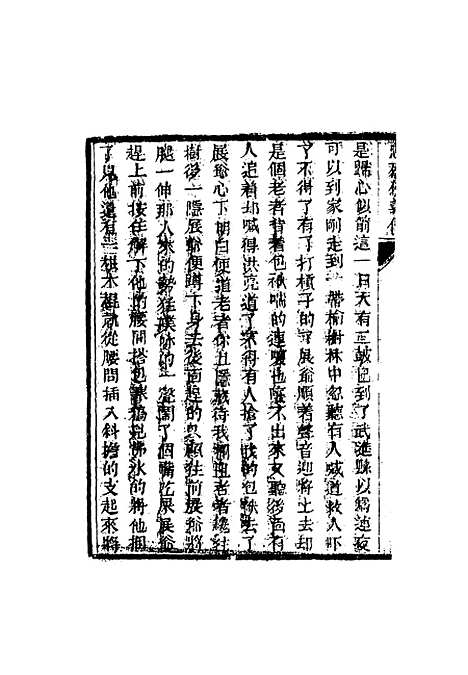 是歸心似箭這一日天有三鼓已到了武進縣以爲連夜
可以到家剛走到一帶榆樹林中忽聽有人喊道救人吓
了不得了有了打槓子的了展爺順着聲音迎將上去却
是個老者背着包袱喘的連嚷也嚷不出來又聽後面有
人追着却喊得洪亮道了不得有人搶了我的包袱去了
展爺心下明白便道老者你且隱藏待我攔阻老者纔往
樹後一隱展爺便蹲下身去後面趕的只顧往前展爺將
腿一伸那人來的勢猛撲哧的一聲鬧了個嘴吃屎展爺
趕上前按住解下他的腰間搭包寒鴉兒拂水的將他綑
了見他還有一根木棍就從腰間插入斜擔的支起來將